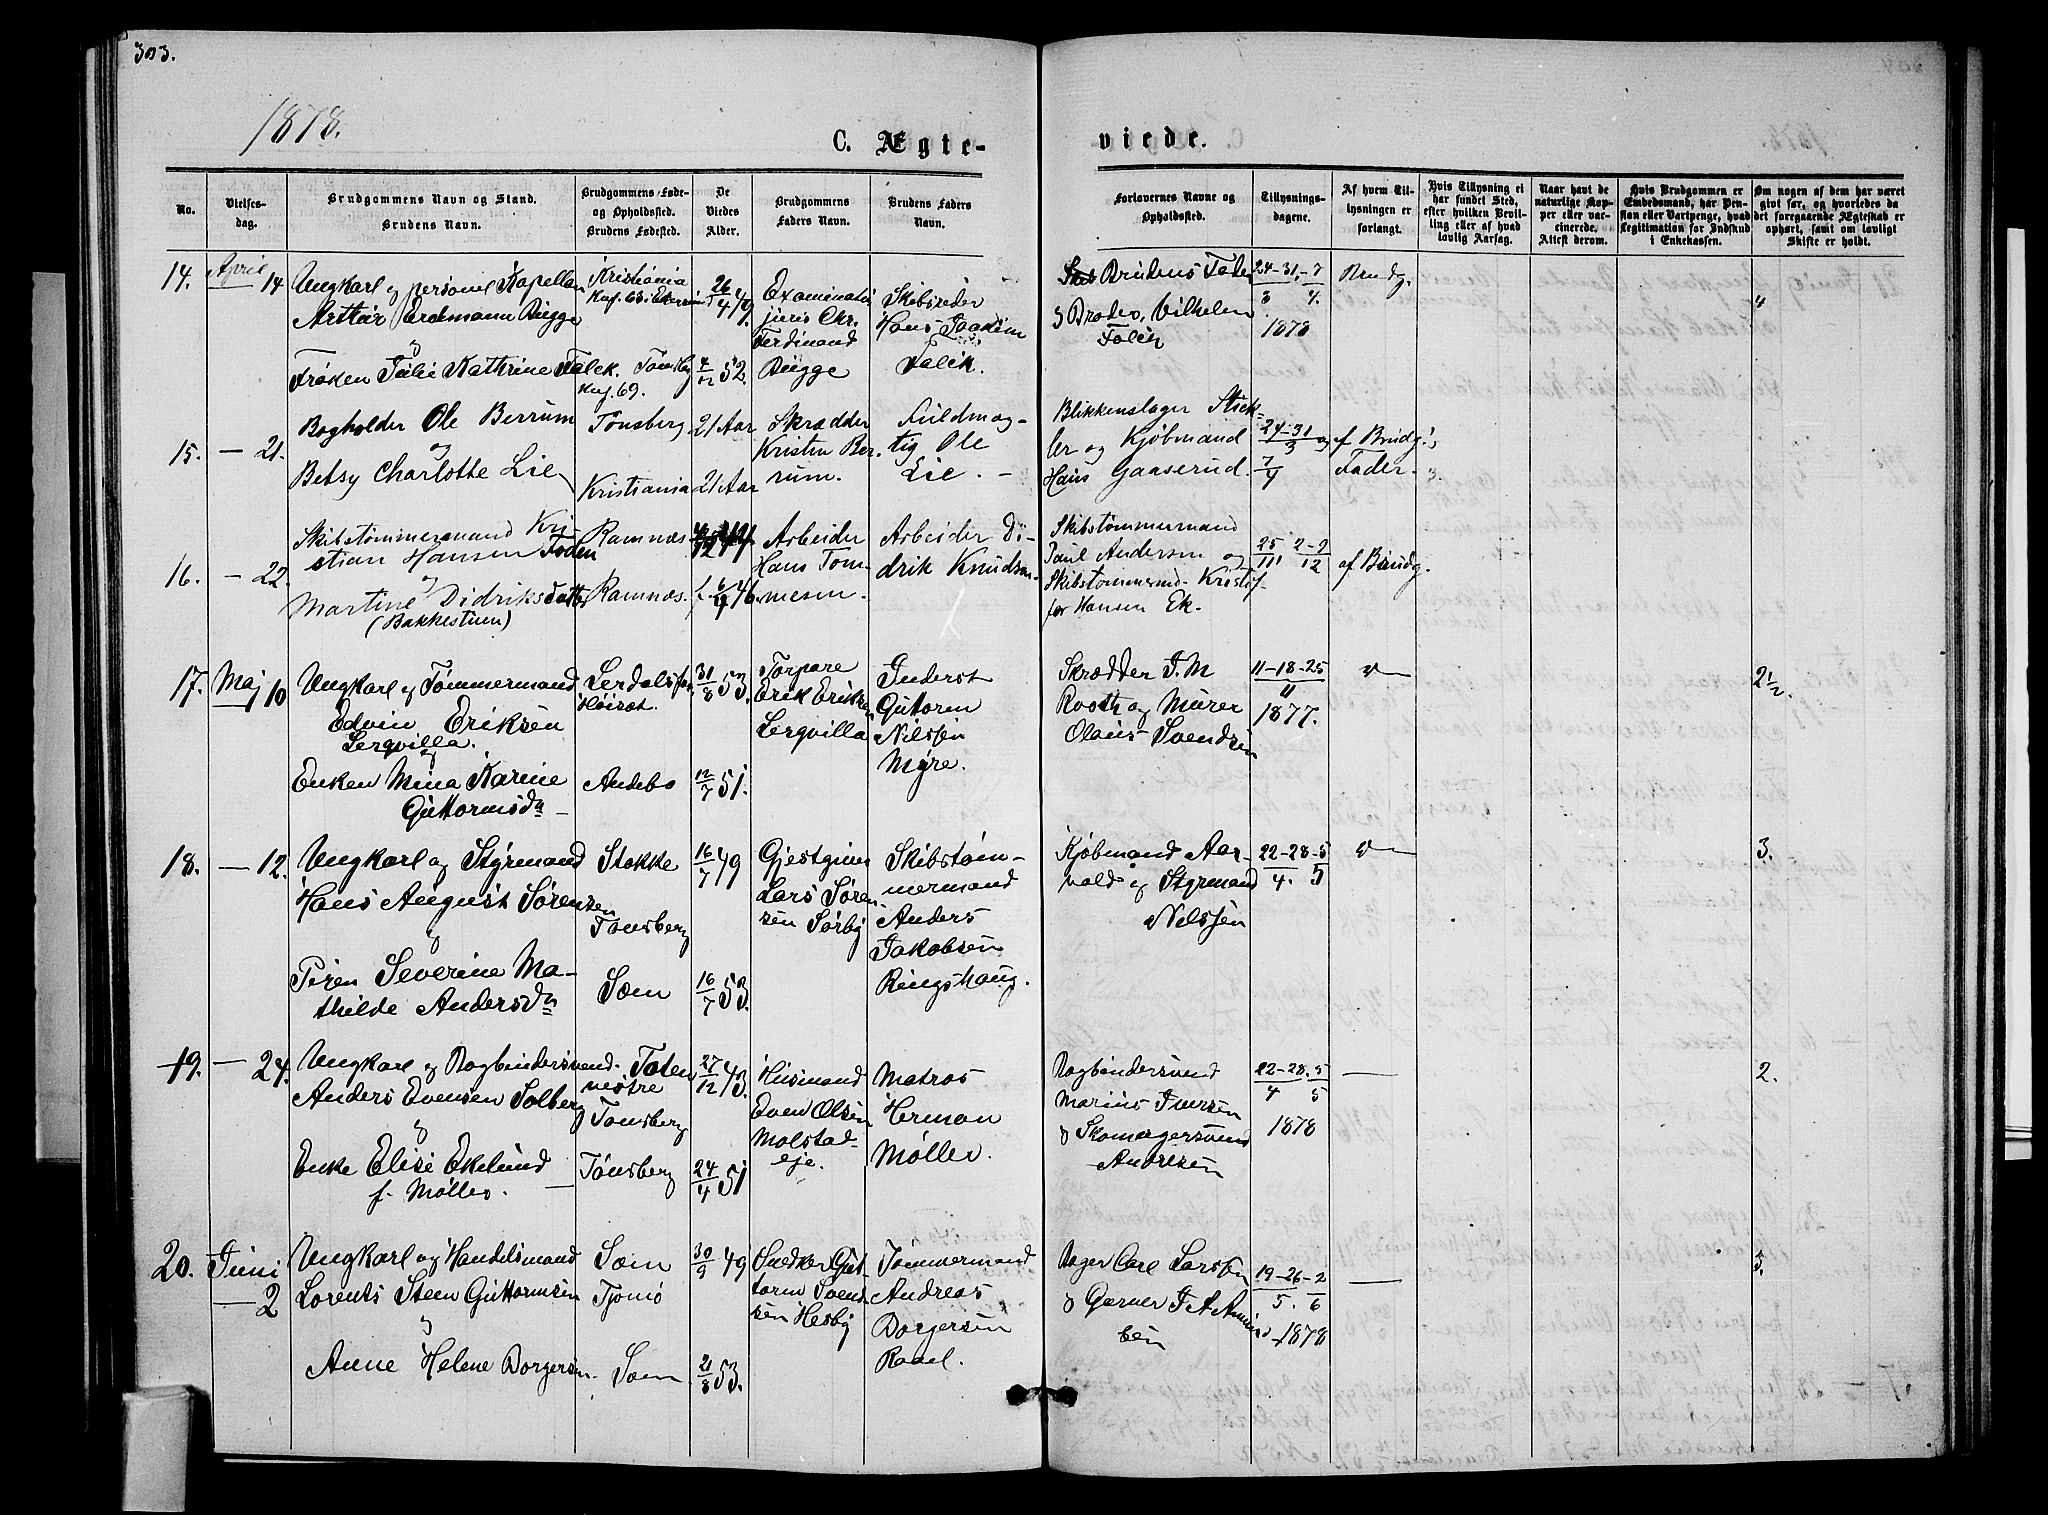 303.
1878.
C. Ægte-
viede.
No.
Vielses-
dag.
Brudgommens Navn og Stand.
Brudens Navn.
Brudgommens Føde-
og Opholdssted.
Brudens Fødested.
De
Viedes
Alder.
Brudgommens
Faders Navn.
Brudens Faders
Navn.
Forlovernes Navne og
Opholdssted.
Tillysnings-
dagene.
Af hvem Til-
lysningen er
forlangt.
Hvis Tillysning ei
har fundet Sted,
efter hvilken Bevil-
ling eller af hvad
lovlig Aarsag.
Naar havt de
naturlige Kop-
per eller vac-
cinerede.
Attest derom.
Hvis Brudgommen er
Embedsmand, har Pen-
sion eller Vartpenge, hvad
Legitimation for Indskud
i Enkekassen.
Om nogen af dem har været
givt før, og hvorledes da
det foregaaende Ægteskab er
ophørt, samt om lovligt
Skifte er holdt.
14.
April
14
Ungkarl og personel Kapellan
Arthur Erdmann Bugge
og
Frøken Julie Kathrine Falck.
Kristiania
Tønsberg
Knf. 69.
26/4 49.
4/12 52.
Examinatus
juris Chr.
Ferdinand
Bugge
Skibsreder
Hans Joakim
Falck.
Brudens Fader
og Broder, Vilhelm
Falck
24-31,-7
3 4.
1878
Brudg.
4
15.
— 21.
Bogholder Ole Berrum
og
Betsy Charlotte Lie
Tønsberg
Kristiania
21 Aar
21 Aar
Skrædder
Kristen Ber-
rum.
Fuldmæg-
tig Ole
Lie. —
Blikkenslager Stick-
ler og Kjøbmand
Hans Gaaserud.
24-31/3 og
7/4
af Brudg:s
Fader.
16.
— 22.
Skibstømmermand Kri-
stian Hansen Foden
og
Martine Didriksdatter
(Bakkestuen)
Ramnæs
Ramnæs.
f. 6/9 46.
Arbeider
Hans Tom-
mesen.
Arbeider Di-
drik Knudsen.
Skibstømmermand
Paul Andersen og
Skibstømmermd. Kristof-
fer Hansen Ek.
25 2-9
11 12
af Brudg.
17.
Maj 10
Ungkarl og Tømmermand
Edvin Eriksen
Lerqvilla.
og
Enken Mina Karine
Guttormsdn —
Andebo
31/8 53.
12/7 51.
Torpare
Erik Eriksen
Lerqvilla
Inderst
Gutorm
Nilssen
Myre.
Skrædder J. M
Rooth og Murer
Olaus Svendsen
11-18-25
11
1877.
2½.
18.
— 12.
Ungkarl og Styrmand
Hans August Sørensen
og
Piren Severine Ma-
thilde Andersdn
Stokke
Tønsberg
Sæm
16/7 49
16/7 53.
Gjestgiver
Lars Søren-
sen Sørby
Skibstøm-
mermand
Anders
Jakobsen
Ringshaug.
Kjøbmand Aar-
vold og Styrmand
Nilssen
22-28-5
4. 5
3.
19.
— 24.
Ungkarl og Bogbindersvend.
Anders Evensen Solberg
og
Enke Elise Ekelund
f. Møller. —
Toten
vestre
Tønsberg
Tønsberg
27/12 43.
24/4 51
Husmand
Even Olsen
Molstad-
eje.
Matros
Herman
Møller.
Bogbindersvend
Marius Iversen
og Skomagersvend
Andresen
22-28. 5
4 5
1878
—
2.
20.
Juni
— 2
Ungkarl og Handelsmand
Lorents Steen Guttormsen
og
Anne Helene Borgersen.
Sæm
Tjømø
Sæm
30/9 49
21/8 53.
Snedker Gut-
torm Svend-
sen Hesby
Tømmermand
Andreas
Borgersen
Rael.
Bager Carl Larsen
og Garver J A Amund-
sen
19-26-2
5. 6
1878
—
3.